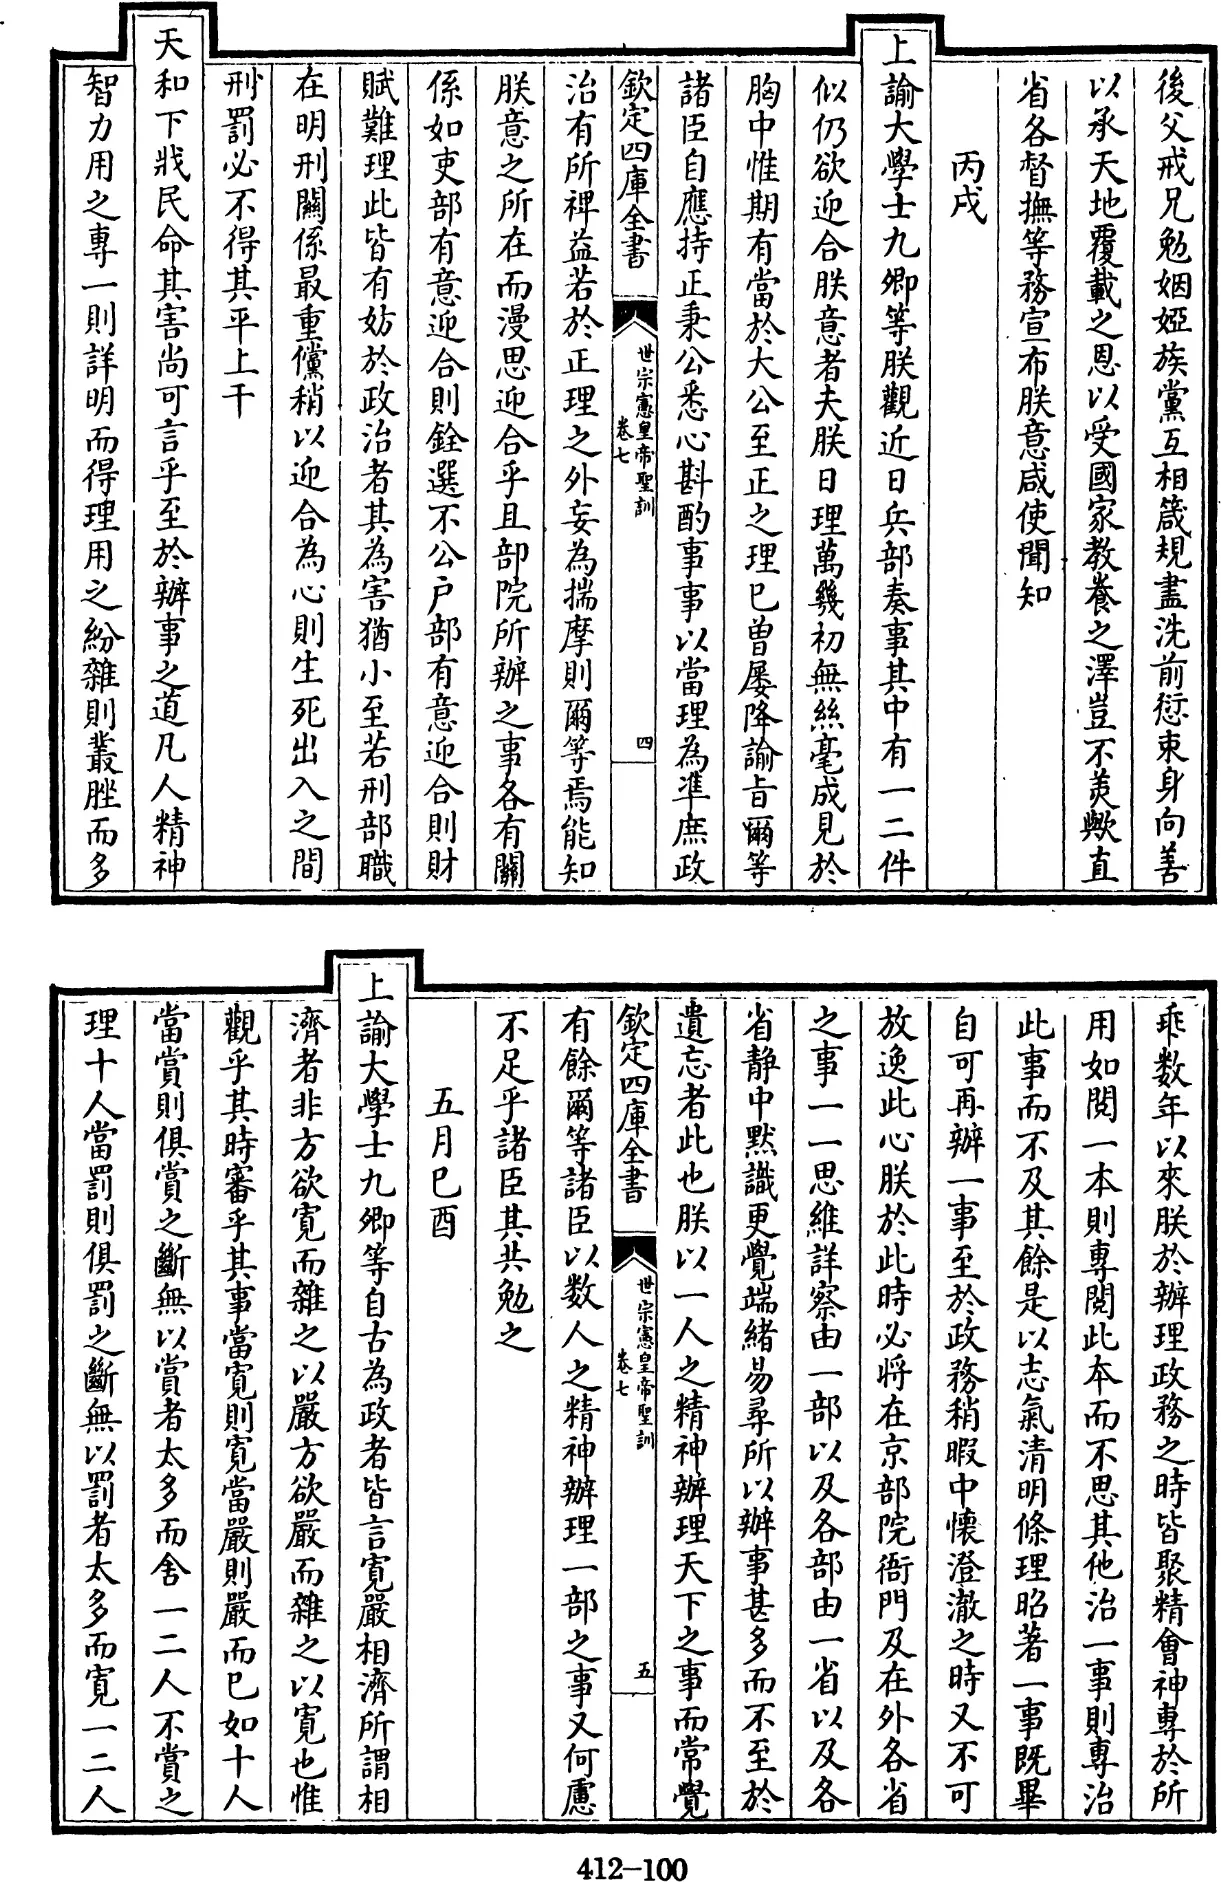 後父戒兄勉姻婭族黨互相箴規盡洗前愆束身向善
以承天地覆載之恩以受國家教養之澤豈不美歟直
省各督撫等務宣布朕意咸使聞知
丙戌
上諭大學士九卿等朕觀近日兵部奏事其中有一二件
似仍欲迎合朕意者夫朕日理萬幾初無絲毫成見於
胸中惟期有當於大公至正之理已曾屢降諭旨爾等
諸臣自應持正秉公悉心斟酌事事以當理為準庶政
欽定四庫全書
世宗憲皇帝聖訓
卷七
四
治有所裨益若於正理之外妄為揣摩則爾等焉能知
朕意之所在而漫思迎合乎且部院所辦之事各有關
係如吏部有意迎合則銓選不公户部有意迎合則財
賦難理此皆有妨於政治者其為害猶小至若刑部職
在明刑關係最重儻稍以迎合為心則生死出入之間
刑罰必不得其平上干
天和下戕民命其害尚可言乎至於辦事之道凡人精神
智力用之專一則詳明而得理用之紛雜則叢脞而多
乖数年以來朕於辦理政務之時皆聚精會神專於所
用如閲一本則專閲此本而不思其他治一事則專治
此事而不及其餘是以志氣清明條理昭著一事既畢
自可再辦一事至於政務稍暇中懷澄澈之時又不可
放逸此心朕於此時必将在京部院衙門及在外各省
之事一一思維詳察由一部以及各部由一省以及各
省静中默識更覺端緒易尋所以辦事甚多而不至於
遺忘者此也朕以一人之精神辦理天下之事而常覺
欽定四庫全書
世宗憲皇帝聖訓
卷七
五
有餘爾等諸臣以数人之精神辦理一部之事又何慮
不足乎諸臣其共勉之
五月已酉
上諭大學士九卿等自古為政者皆言寛嚴相濟所謂相
濟者非方欲寛而雜之以嚴方欲嚴而雜之以寛也惟
觀乎其時審乎其事當寛則寛當嚴則嚴而已如十人
當賞則俱賞之斷無以賞者太多而舍一二人不賞之
理十人當罰則俱罰之斷無以罰者太多而寛一二人
412-100